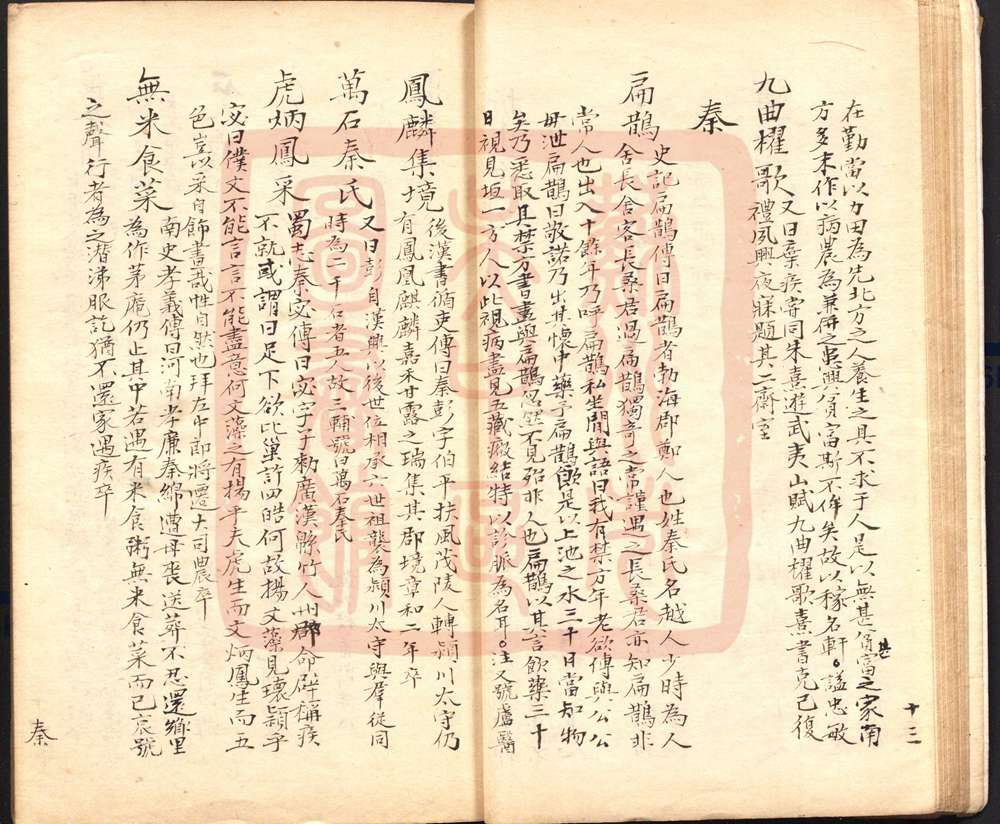 在勤當以力田為先北方之人養生之具不求于人是以無甚貧甚富之家南
方多末作以病農為兼併之患興貧富斯不侔矣故以稼名軒。謚忠敏
九曲櫂歌又曰棄疾嘗同朱熹遊武夷山賦九曲櫂歌熹書克己復
禮夙興夜寐題其二齋室
秦
扁鵲史記扁鵲傳曰扁鵲者勃海郡鄭人也姓秦氏名越人少時為人
舍長舍客長桑君過扁鵲獨奇之常謹遇之長桑君亦知扁鵲非
常人也出入十餘年乃呼扁鵲私坐間與語曰我有禁方年老欲傳與公公
毋泄扁鵲曰敬諾乃出其懷中藥予扁鵲飲是以上池之水三十日當知物
矣乃悉取其禁方書盡與扁鵲忽然不見殆非人也扁鵲以其言飲藥三十
日視見垣一方人以此視病盡見五藏癥結特以診脈為名耳。注又號盧醫
鳳麟集境後漢書循吏傳曰秦彭字伯平扶風茂陵人轉潁川太守仍
有鳳凰麒麟嘉禾甘露之瑞集其郡境章和二年卒
萬石秦氏又曰彭自漢興以後世位相承六世祖襲為潁川太守與羣從同
時為二千石者五人故三輔號曰萬石秦氏
虎炳鳳采蜀志秦宓傳曰宓字子勑廣漢緜竹人州郡命辟稱疾
不就或謂曰足下欲比巢許四皓何故揚文藻見瓌穎乎
宓曰僕文不能言言不能盡意何文藻之有揚乎夫虎生而文炳鳳生而五
色豈以采自飾畫哉性自然也拜左中郎將遷大司農卒
無米食菜南史孝義傳曰河南孝廉秦綿遭母喪送葬不忍還鄉里
為作茅庵仍止其中若遇有米食粥無米食菜而已哀號
之聲行者為之潸涕服訖猶不還家遇疾卒
十三
秦